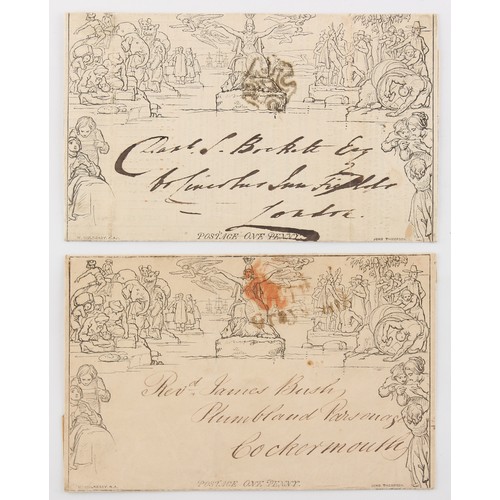 Chas. S. Beckett Esq
60 Lincolns Inn Fields
London
POSTAGE ONE PENNY.
Revd. James Bush,
Plumbland Parsonage
Cockermouth
POSTAGE ONE PENNY.